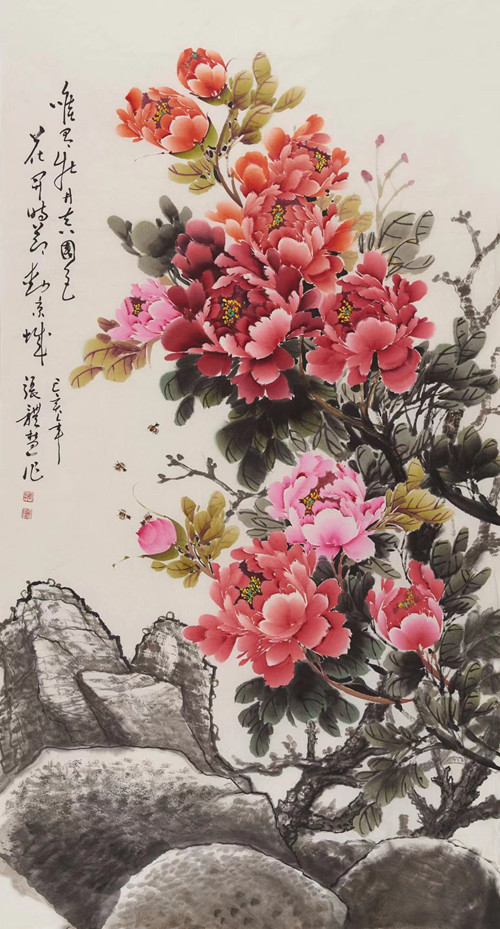 唯有牡丹真国色
花开时节动京城
己亥年
張體慧作